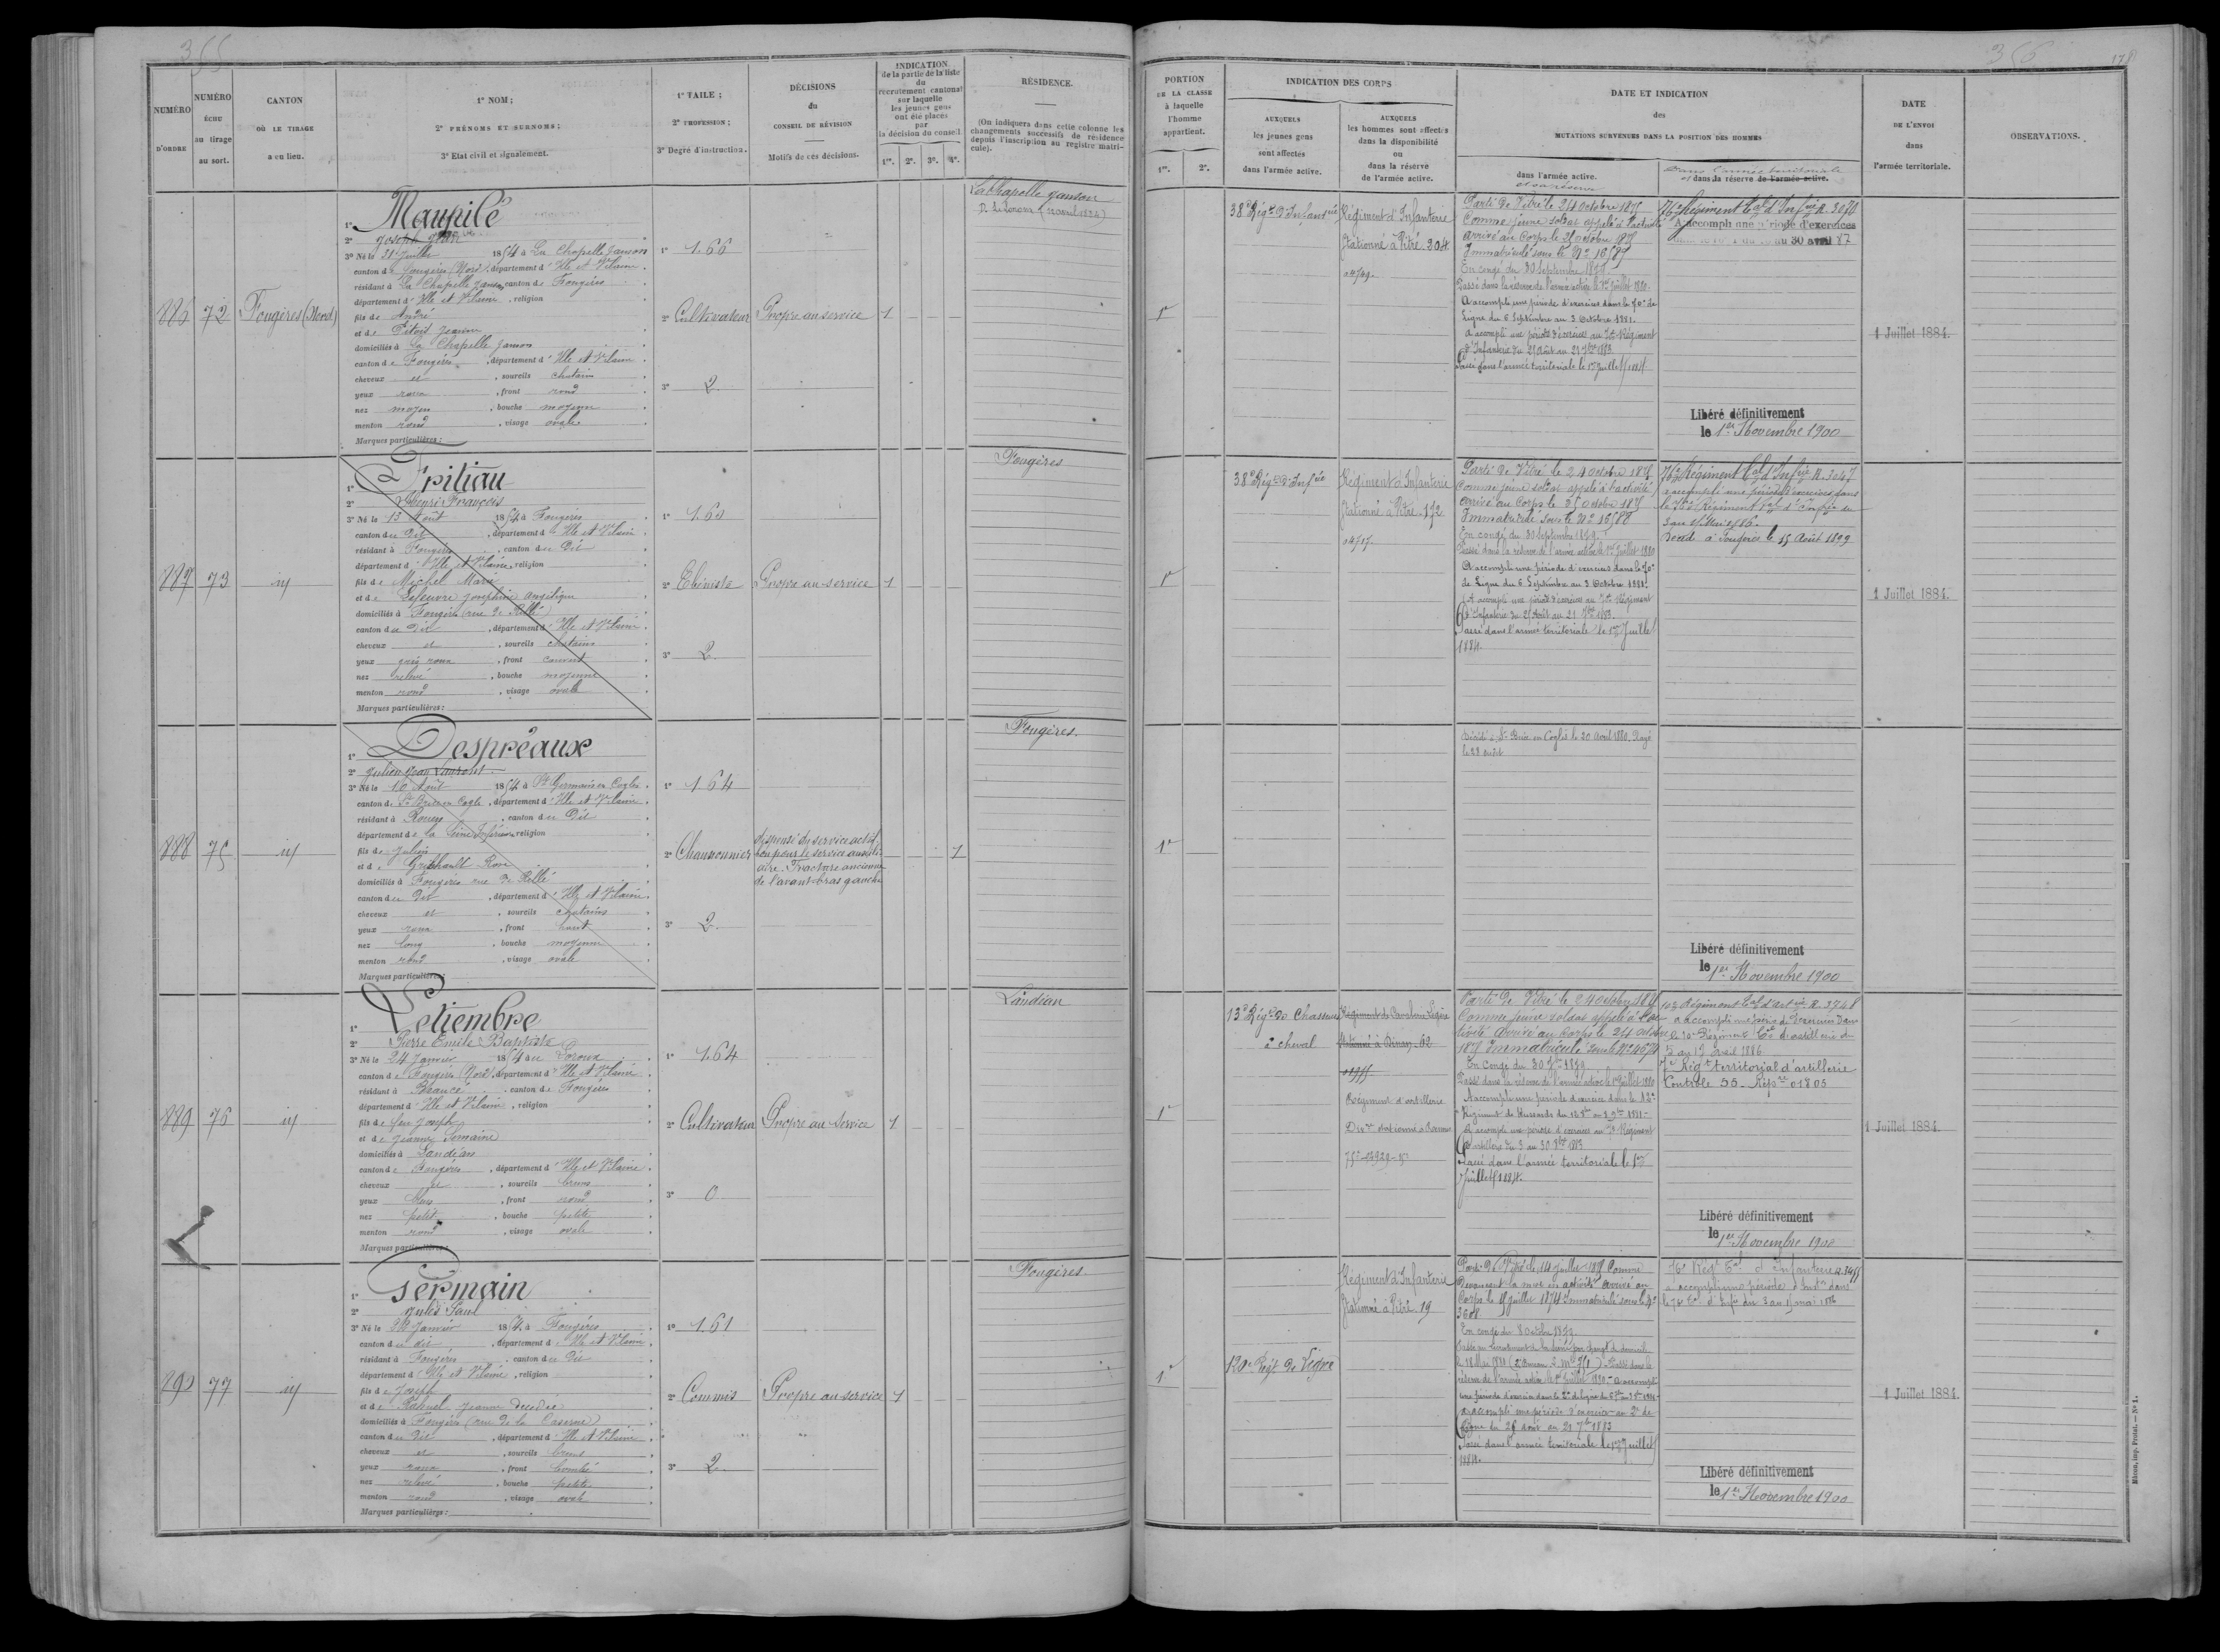 355
NUMÉRO D'ORDRE
NUMÉRO ÉCHU au tirage au sort.
CANTON OÙ LE TIRAGE a eu lieu.
1° NOM;
2° PRÉNOMS ET SURNOMS;
3° Etat civil et signalement.
1° TAILLE;
2° PROFESSION;
3° Degré d'instruction.
DÉCISIONS
du
CONSEIL DE RÉVISION
Motifs de ces décisions.
INDICATION
de la partie de la liste
du
recrutement cantonal
sur laquelle
les jeunes gens
ont été placés
par
la décision du conseil
1re. 2e. 3e. 4e.
RÉSIDENCE.
(On indiquera dans cette colonne les
changements successifs de résidence
depuis l'inscription au registre matri-
cule).
886 72 Fougères (Nord)
1° Maupilé
2° Joseph Jean
3° Né le 31 Juillet 1854 à La Chapelle Janson
canton de Fougères (Nord), département d'Ille et Vilaine
résidant à La Chapelle Janson, canton de Fougères
département d'Ille et Vilaine, religion
fils de André
et de Pitois Jeanne
domiciliés à La Chapelle Janson
canton de Fougères, département d'Ille et Vilaine
cheveux et, sourcils chatains
yeux roux, front rond
nez moyen, bouche moyenne
menton rond, visage ovale
Marques particulières:
1° 1.66
2° Cultivateur
3° 2
Propre au service 1
La Chapelle Janson
887 73 id
1° Fritiau
2° Henri François
3° Né le 13 Août 1854 à Fougères
canton du Dit, département d'Ille et Vilaine
résidant à Fougères, canton du Dit
département d'Ille et Vilaine, religion
fils de Michel Marie
et de Lefeuvre Josephine Angélique
domiciliés à Fougères (rue de Rillé)
canton du Dit, département d'Ille et Vilaine
cheveux et, sourcils chatains
yeux gris roux, front couvert
nez relevé, bouche moyenne
menton rond, visage ovale
Marques particulières:
2° Ebéniste
3° 2
Propre au service 1
Fougères
888 75 id
1° Despréaux
2° Julien Jean Laurent
3° Né le 10 Août 1854 à St Germain en Cogles
canton de St Brice en Cogle, département d'Ille et Vilaine
résidant à Rouen, canton du Dit
département de la Seine Inférieure, religion
fils de Julien
et de Rose
domiciliés à Fougères rue de Rillé
canton du Dit, département d'Ille et Vilaine
cheveux et, sourcils chatains
yeux roux, front haut
nez long, bouche moyenne
menton rond, visage ovale
Marques particulières:
1° 1.64
2° Chaussonnier
3° 2
dispensé du service actif
bon pour le service auxili-
aire. Fracture ancienne
de l'avant-bras gauche
1
Fougères.
889 76 id
1° Letiembre
2° Pierre Emile Baptiste
3° Né le 24 Janvier 1854 au Loroux
canton de Fougères (Nord), département d'Ille et Vilaine
résidant à Beaucé, canton de Fougères
département d'Ille et Vilaine, religion
fils de feu Joseph
et de Jeanne Lemaine
domiciliés à Landéan
canton de Fougères, département d'Ille et Vilaine
cheveux et, sourcils bruns
yeux bleus, front rond
nez petit, bouche petite
menton rond, visage ovale
Marques particulières:
1° 1.64
2° Cultivateur
3° 0
Propre au service 1
Landéan
890 77 id
1° Germain
2° Jules Paul
3° Né le Janvier 1854 à Fougères
canton du dit, département d'Ille et Vilaine
résidant à Fougères, canton du Dit
département d'Ille et Vilaine, religion
fils de Joseph
et de Jeanne Désirée
domiciliés à Fougères (rue de la Caserne)
canton du Dit, département d'Ille et Vilaine
cheveux et, sourcils bruns
yeux roux, front bombé
nez relevé, bouche petite
menton rond, visage ovale
Marques particulières:
1° 1.61
2° Commis
3° 2
Propre au service 1
Fougères
356
178
PORTION
DE LA CLASSE
à laquelle
l'homme
appartient.
1re. 2e.
INDICATION DES CORPS
AUXQUELS
les jeunes gens
sont affectés
dans l'armée active.
AUXQUELS
les hommes sont affectés
dans la disponibilité
ou
dans la réserve
de l'armée active.
DATE ET INDICATION
des
MUTATIONS SURVENUES DANS LA POSITION DES HOMMES
dans l'armée active.
et en réserve
Dans l'armée territoriale
et dans la réserve de l'armée active.
DATE
DE L'ENVOI
dans
l'armée territoriale.
OBSERVATIONS.
1re
38e Régt d'Infanterie
Régiment d'Infanterie
stationné à Vitré. 304
Parti de Vitré le 24 octobre 1875
Comme jeune soldat appelé à l'activité
Arrivé au Corps le 25 octobre 1875
Immatriculé sous le No 16587
En congé du 30 Septembre 1879
Passé dans la réserve de l'armée active le 1er Juillet 1880.
A accompli une période d'exercices dans le 70e de
Ligne du 6 Septembre au 3 Octobre 1881.
A accompli une période d'exercices au 70e Régiment
d'Infanterie du 25 Août au 21 7bre 1883
Passé dans l'armée territoriale le 1er Juillet 1884
76e Régiment tal d'Infrie R. 3070
A accompli une période d'exercices
au 30 avril 87
Libéré définitivement
le 1er Novembre 1900
1 Juillet 1884.
1re
38e Régt d'Infie
Régiment d'Infanterie
stationné à Vitré. 172
Parti de Vitré le 24 octobre 1875
Comme jeune soldat appelé à l'activité
Arrivé au Corps le 25 octobre 1875
Immatriculé sous le No 16588
En congé du 30 septembre 1879.
Passé dans la réserve de l'armée active le 1er Juillet 1880
A accompli une période d'exercices dans le 70e
de Ligne du 6 Septembre au 3 Octobre 1881.
A accompli une période d'exercices au 70e Régiment
d'Infanterie du 25 Août au 21 7bre 1883.
Passé dans l'armée territoriale le 1er Juillet
1884.
76e Régiment tal d'Infrie R. 3047
a accompli une période d'exercices dans
le 76e Régiment
Décédé à Fougères le 15 Août 1899
1 Juillet 1884.
1re
Décédé à St Brice en Coglès le 20 Avril 1880. Rayé
le 28 suivt
Libéré définitivement
le 1er Novembre 1900
1re
13e Régt de Chasseurs
à cheval
Régiment de Cavalerie Légère
stationné à Dinan. 62
Régiment d'artillerie
Parti de Vitré le 24 octobre 1875
Comme jeune soldat appelé à l'ac-
tivité Arrivé au Corps le 24 octobre
1875 Immatriculé sous le No
En Congé du 30 7bre 1879
Passé dans la réserve de l'armée active le 1er Juillet 1880
A accompli une période d'exercice dans le 12e
Régiment de Hussards
A accompli une période d'exercices au Régiment
d'artillerie du 3 au 30 1883
Passé dans l'armée territoriale le 1er
Juillet 1884.
10e Régiment tal d'artie R. 3748
a accompli une période d'exercices dans
le 10e Régiment tal d'artillerie du
5 au 17 avril 1886
Régt territorial d'artillerie
Contrôle 55
Libéré définitivement
le 1er Novembre 1900
1 Juillet 1884.
1re
120e Régt de Ligne
Régiment d'Infanterie
stationné à Vitré. 19
Parti de Vitré le 14 Juillet 187 Comme
Devançant la mise en activité Arrivé au
Corps le Juillet 187 Immatriculé sous le No
3608
En congé du 8 octobre
réserve de l'armée active le 1er Juillet 1880.
a accompli une période d'exercice au 2e de
Ligne du 26 août au 21 7bre 1883
Passé dans l'armée territoriale le 1er Juillet
1884.
76e Régt tal d'Infanterie R. 3455
a accompli une période
Libéré définitivement
le 1er Novembre 1900
1 Juillet 1884.
Mâcon, imp. Protat. — No 1.